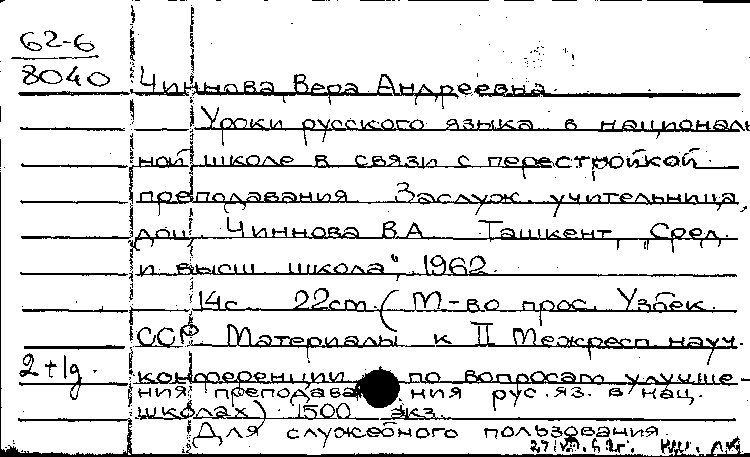 62-6
8040
Чиннова, Вера Андреевна.
Уроки русского языка в националь
ной школе в связи с перестройкой
преподавания. Заслуж. учительница,
доц. Чиннова В.А. Ташкент, "Сред.
и высш. школа", 1962.
14с. 22cm. (М-во прос. Узбек.
ССР. Материалы к II Межресп. науч.
2+1g.
конференции по вопросам улучше-
ния преподавания рус. яз. в нац.
школах) 1500 экз.
Для служебного пользования.